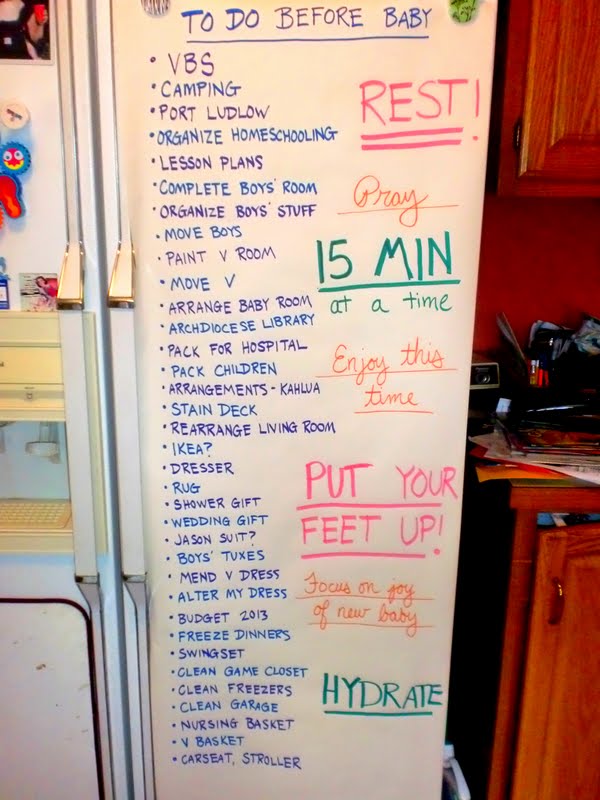 TO DO BEFORE BABY
• VBS
• CAMPING
• PORT LUDLOW
• ORGANIZE HOMESCHOOLING
• LESSON PLANS
• COMPLETE BOYS' ROOM
• ORGANIZE BOYS' STUFF
• MOVE BOYS
• PAINT V ROOM
• MOVE V
• ARRANGE BABY ROOM
• ARCHDIOCESE LIBRARY
• PACK FOR HOSPITAL
• PACK CHILDREN
• ARRANGEMENTS - KAHLUA
• STAIN DECK
• REARRANGE LIVING ROOM
• IKEA?
• DRESSER
• RUG
• SHOWER GIFT
• WEDDING GIFT
• JASON SUIT?
• BOYS' TUXES
• MEND V DRESS
• ALTER MY DRESS
• BUDGET 2013
• FREEZE DINNERS
• SWINGSET
• CLEAN GAME CLOSET
• CLEAN FREEZERS
• CLEAN GARAGE
• NURSING BASKET
• V BASKET
• CARSEAT, STROLLER
REST!
Pray
15 MIN
at a time
Enjoy this
time
PUT YOUR
FEET UP!
Focus on joy
of new baby
HYDRATE